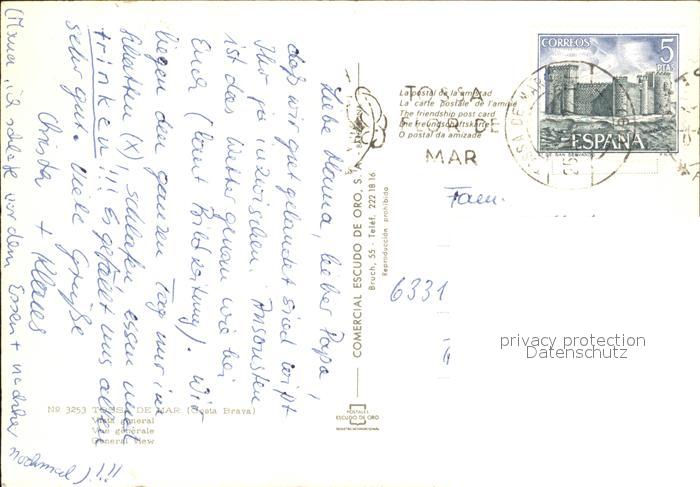 Liebe Mama, lieber Papa,
daß wir gut gelandet sind wißt
Ihr ja inzwischen. Ansonsten
ist das Wetter genau wie bei
Euch (laut Bildzeitung). Wir
liegen den ganzen Tag nur im
Schatten (X) schlafen essen und
trinken!!! Es gefällt uns allen
sehr gut. Viele Grüße
Christa + Klaus
(Mama, ich schlafe vor dem Essen + nachher nochmal)!!!
Nº 3253 TOSSA DE MAR (Costa Brava)
Vista general
Vue générale
General view
COMERCIAL ESCUDO DE ORO, S.A.
Bruch, 55 - Teléf. 222 18 16
Reproducción prohibida
POSTALES
ESCUDO DE ORO
La postal de la amistad
La carte postale de l'amitié
The friendship post card
Die Freundschaftskarte
O postal da amizade
TOSSA
DE
MAR
TOSSA DE MAR
CORREOS
5
PTAS
ESPAÑA
Fam.
6331
privacy protection
Datenschutz